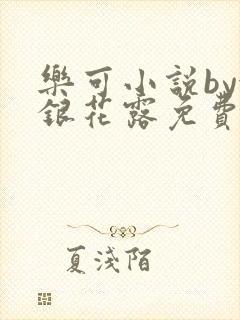 樂可小説by
銀花露免費
夏淺陌